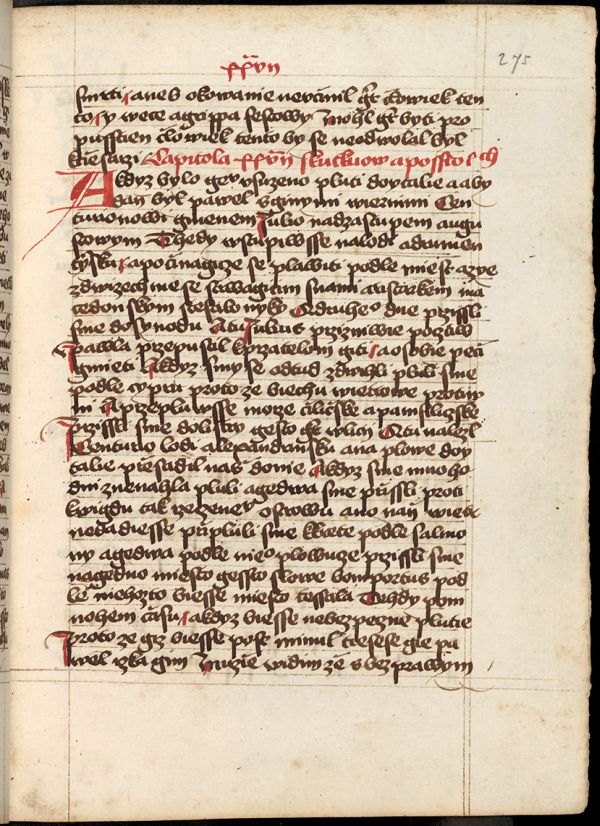 xxvii
275
smrti aneb okowanie neucinil gest clowiek ten
to y wece agrippa festowy mohl gest byti pro
pusstien clowiek tento by se neodwolal byl
k ciesarzi Capitola xxvii skutkuow aposstol
Akdyz bylo usuzeno pluti do wlalie a aby
dan byl pawel s ginymi wieznmi Cen
turionowi gmenem Julio nad zastupem augu
stowym Tehdy wstupiwsse na lodi adrumen
tynsku apocinagicze se plawiti podle miest azye
zdwizechme se s nami aristarkem ma
cedonskym Odruheho dne przissli
sme do synodu A tu Julius przizniwie poziw
Pawla przepustil k przatelom giti a o sobie peci
gmieti A kdyz smy se odtud zdwihli pluli sme
podle cypru proto ze biechu wietrowe protiw
ni A przepluwsse morze cilicske a pamfilizske
przissli sme do listry gesto gest w licii A tu nalezl
Centurio lodi alexandrinsku ana plowe do w
talie presadil nas do nie A kdyz sme mnoho
dni znenahla pluli a gedwa sme prissli proti
k wigdu tak rzeczenemu ostrowu ano nam wietr
nedadiesse pripluli sme Krete podle salmo
ny a gedwa podle nieho plowucze przissli sme
na gedno miesto gessto slowe bonportus pod
le niehozto biesse miesto tessala Tehdy po m
nohem casu a kdyz biesse nebezpeczne plutie
proto ze giz biesse post minul tiessesse gie pa
wel rzka gim Muzie widim ze s bezprawym